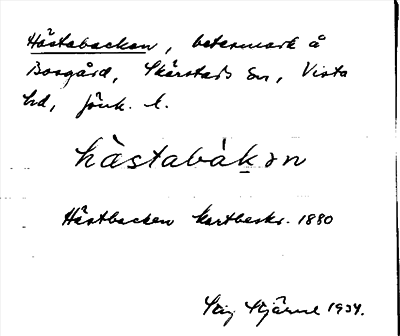 Hästabacken, betesmark å
Boagård, Skärstads sn, Vista
hd, Jönk. l.
hàstabákən
Hästbacken Kartbeskr. 1880
Stig Stjärne 1934.